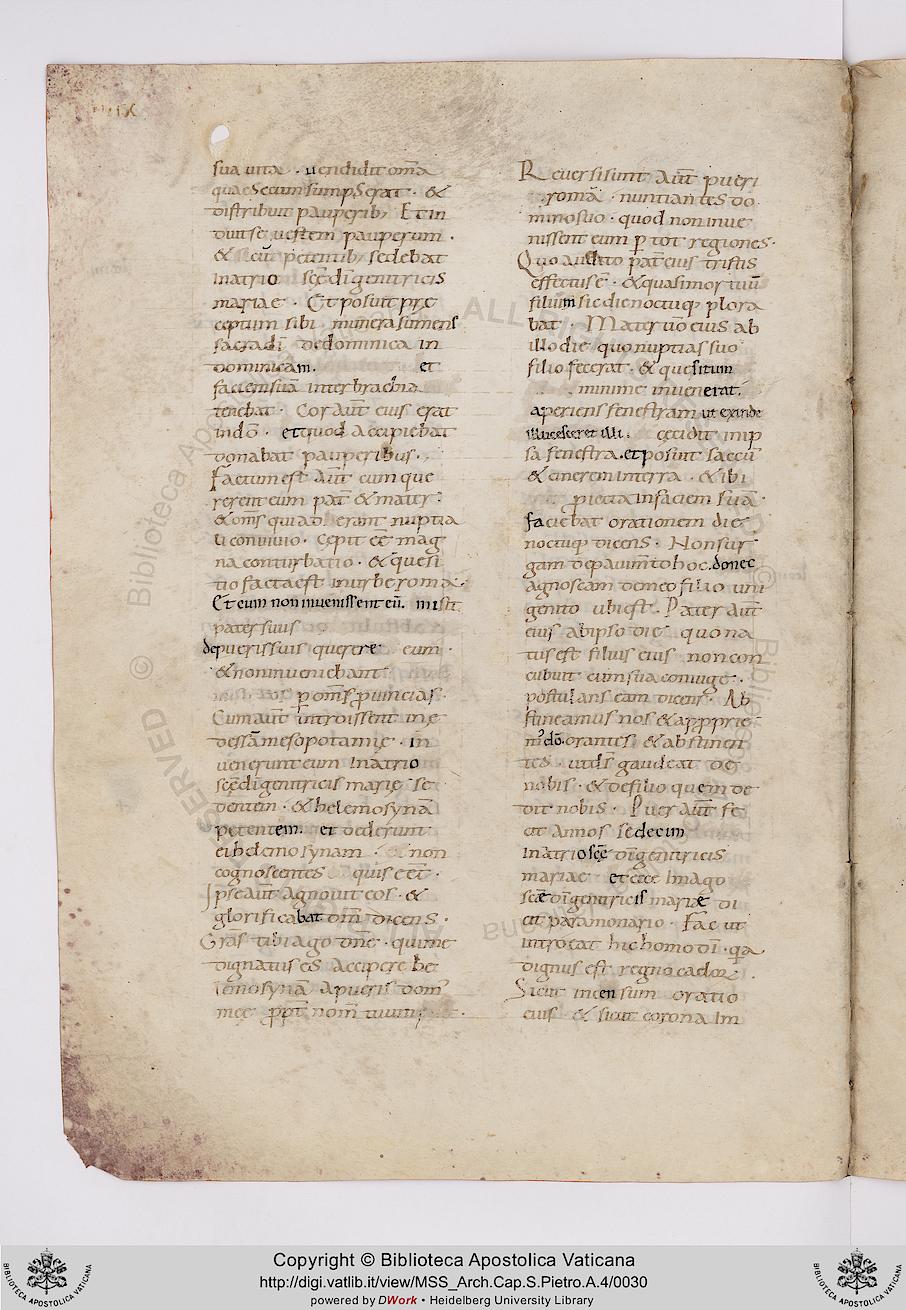 sua uita · uendidit om̄a
quae Secum sumpSerat · &
distribuit pauperib; Et in
duit se uestem pauperum ·
& sicut petentib; sedebat
in atrio scē dī genitricis
mariae · Et posuit pre
ceptum sibi munera sumens
sacra dī de dominica in
dominicam. et
faciem suā inter brachia
tenebat · Cor aūt eius erat
in dō · et quod accipiebat
donabat pauperibus ·
Factum est aūt cum que
rerent eum pat̄ & mater ·
& om̄s qui ad erant nuptia
li conuiuio · Cepit eē mag
na conturbatio · & quesi
tio facta est in urbe roma ·
Et eum non inuenissent eū. misit
pater suus
de pueris suis querere eum ·
& non inueniebant
p om̄s prouincias ·
Cum aūt introissent in e
dessā mesopotamie · in
uenerunt eum In atrio
scē dī genitricis marie se
dentem · & helemosynā
petentem. et dederunt
ei helemosynam & non
cognoscentes quis eēt ·
Ipse aūt agnouit eos · &
glorificabat dm̄ dicens ·
Grās tibi ago dnē · qui me
dignatus es accipere he
lemosynā a pueris dom
mee propt̄ nom̄ tuum ;
Reuersi sunt aūt pueri
romā · nuntiantes do
mino suo · quod non inue
nissent eum p tot regiones ·
Quo audito pat̄ eius tristis
effectus ē · & quasi mortuū
filium sic die noctuq; plora
bat · Mater ūo eius ab
illo die quo nuptias suo
filio fecerat · & quesitum
minime inuenerat.
aperiens fenestram ut exinde
illucesceret illi. cecidit in ip
sa fenestra. et posuit saccū
& cinerem in terra · & ibi
proiecta in faciem suā
faciebat orationem die
noctuq; dicens · Non sur
gam de pauimto hoc. donec
agnoscam de meo filio uni
genito ubi est · Pater aūt
eius ab ipso die quo na
tus est filius eius non con
cubuit cum sua coniuge ·
postulans eam dicens · Ab
stineamus nos & appprie
m' dō. orantes & abstinen
tes · ut dš gaudeat de
nobis · & de filio quem de
dit nobis · Puer aūt fe
cit annos sedecim
In atrio scē dī genitricis
mariae et ecce Imago
scē dī genitricis marie di
cit paramonario · Fac ut
introeat hic homo dī · qa
dignus est regno caelor̄ .
Sicut incensum oratio
eius & sicut corona Im
Copyright © Biblioteca Apostolica Vaticana
http://digi.vatlib.it/view/MSS_Arch.Cap.S.Pietro.A.4/0030
powered by DWork • Heidelberg University Library
BIBLIOTECA APOSTOLICA VATICANA
BIBLIOTECA APOSTOLICA VATICANA